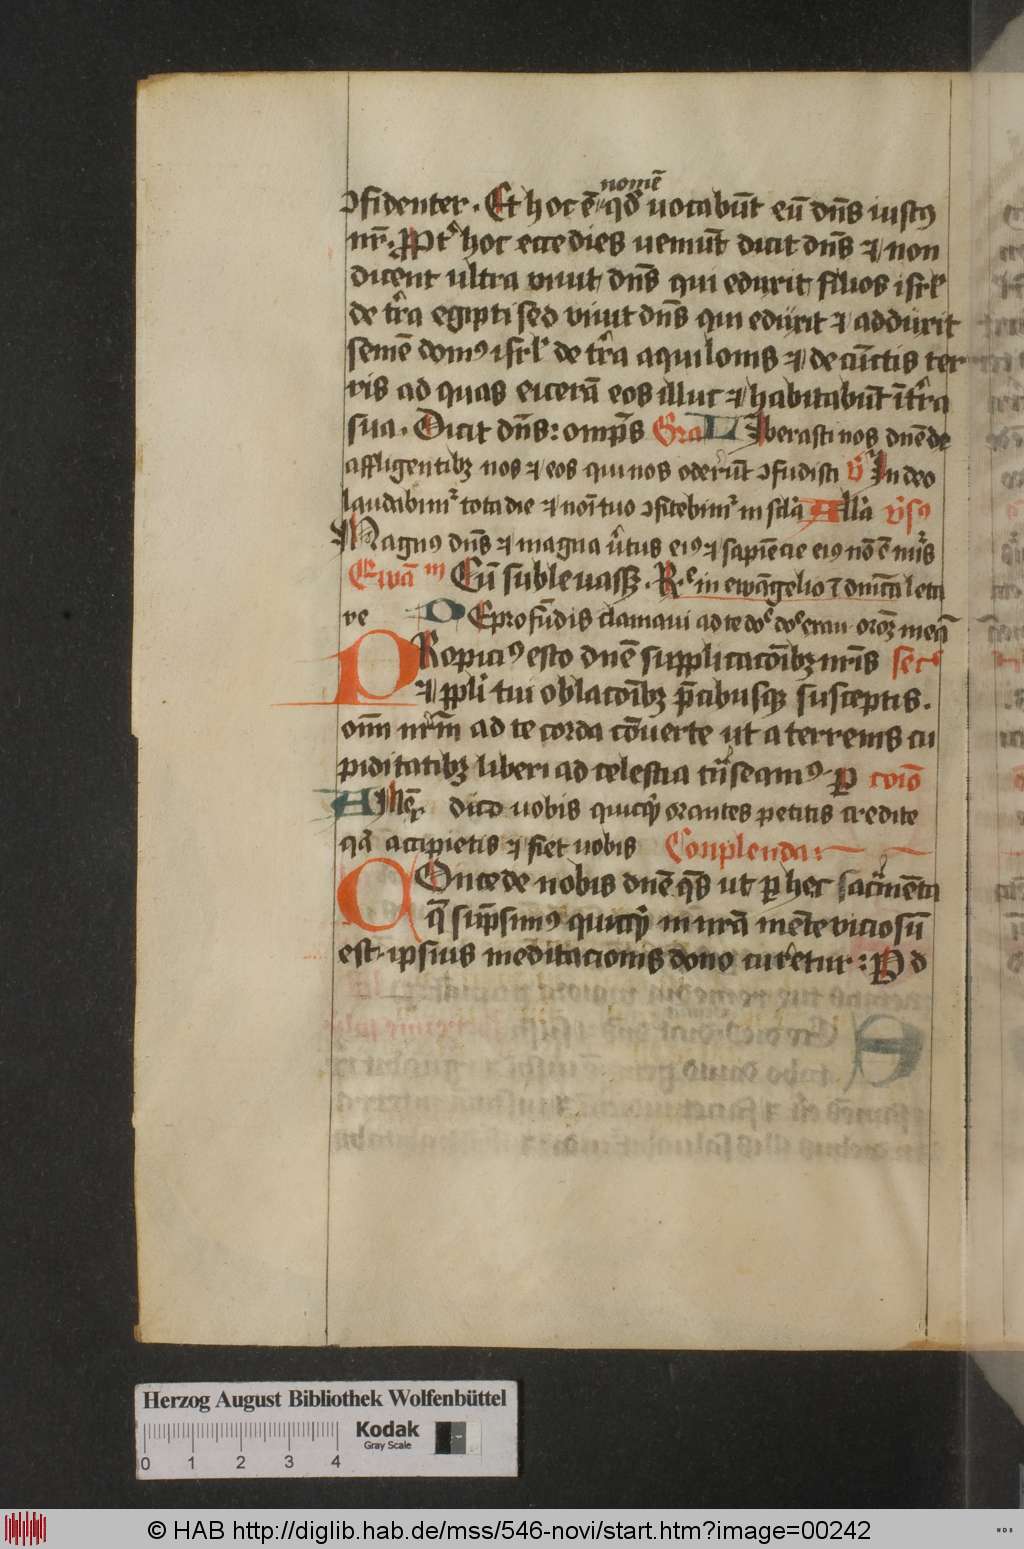 nomē
ↄfidenter. Et hoc ē qđ uocabūt eū dn̄s iustꝰ
nr̄. Pptˀ hoc ecce dies ueniūt dicit dn̄s ⁊ non
dicent ultra viuit dn̄s qui eduxit filios isrl̄
de tr̄a egipti sed viuit dn̄s qui eduxit ⁊ adduxit
semē domꝰ isrl̄ de tr̄a aquilonis ⁊ de cūctis ter
ris ad quas eicerā eos illuc ⁊ habitabūt ī tr̄a
sua. Dicit dn̄s: omp̄s Gra Liberasti nos dn̄e de
affligentibꝫ nos ⁊ eos qui nos oderūt ↄfudisti v̄ In deo
laudabimˀ tota die ⁊ noī tuo ↄfitebimˀ in scl̄a All̄a v̄sꝰ
Magnꝰ dn̄s ⁊ magna v̄tus eiꝰ ⁊ sapiēcie eiꝰ nō ē nūs
Ewā m Cū subleuasꝫ. Rͤ in ewāgelio ī dn̄ica leta
re De profūdis clamaui ad te doͤ doͤ exau oroꝫ meā
PRopiciꝰ esto dn̄e supplicacōibꝫ nr̄is secͣ
⁊ ppli tui oblacōibꝫ p̄cibusqꝫ susceptis.
oīm nr̄m ad te corda cōuerte ut a terrenis cu
piditatibꝫ liberi ad celestia trāseamꝰ. P coīo
AMē dico uobis quicqͥ orantes petitis credite
qꝛ accipietis ⁊ fiet uobis Conplenda:
COncede nobis dn̄e qͣs ut ꝑ hec sacͣmēta
q̄ sūpsimꝰ quicqͥ in nr̄a mēte viciosū
est. ipsius meditacionis dono curetur: P d
Herzog August Bibliothek Wolfenbüttel
0 1 2 3 4
Kodak
Gray Scale
© HAB http://diglib.hab.de/mss/546-novi/start.htm?image=00242